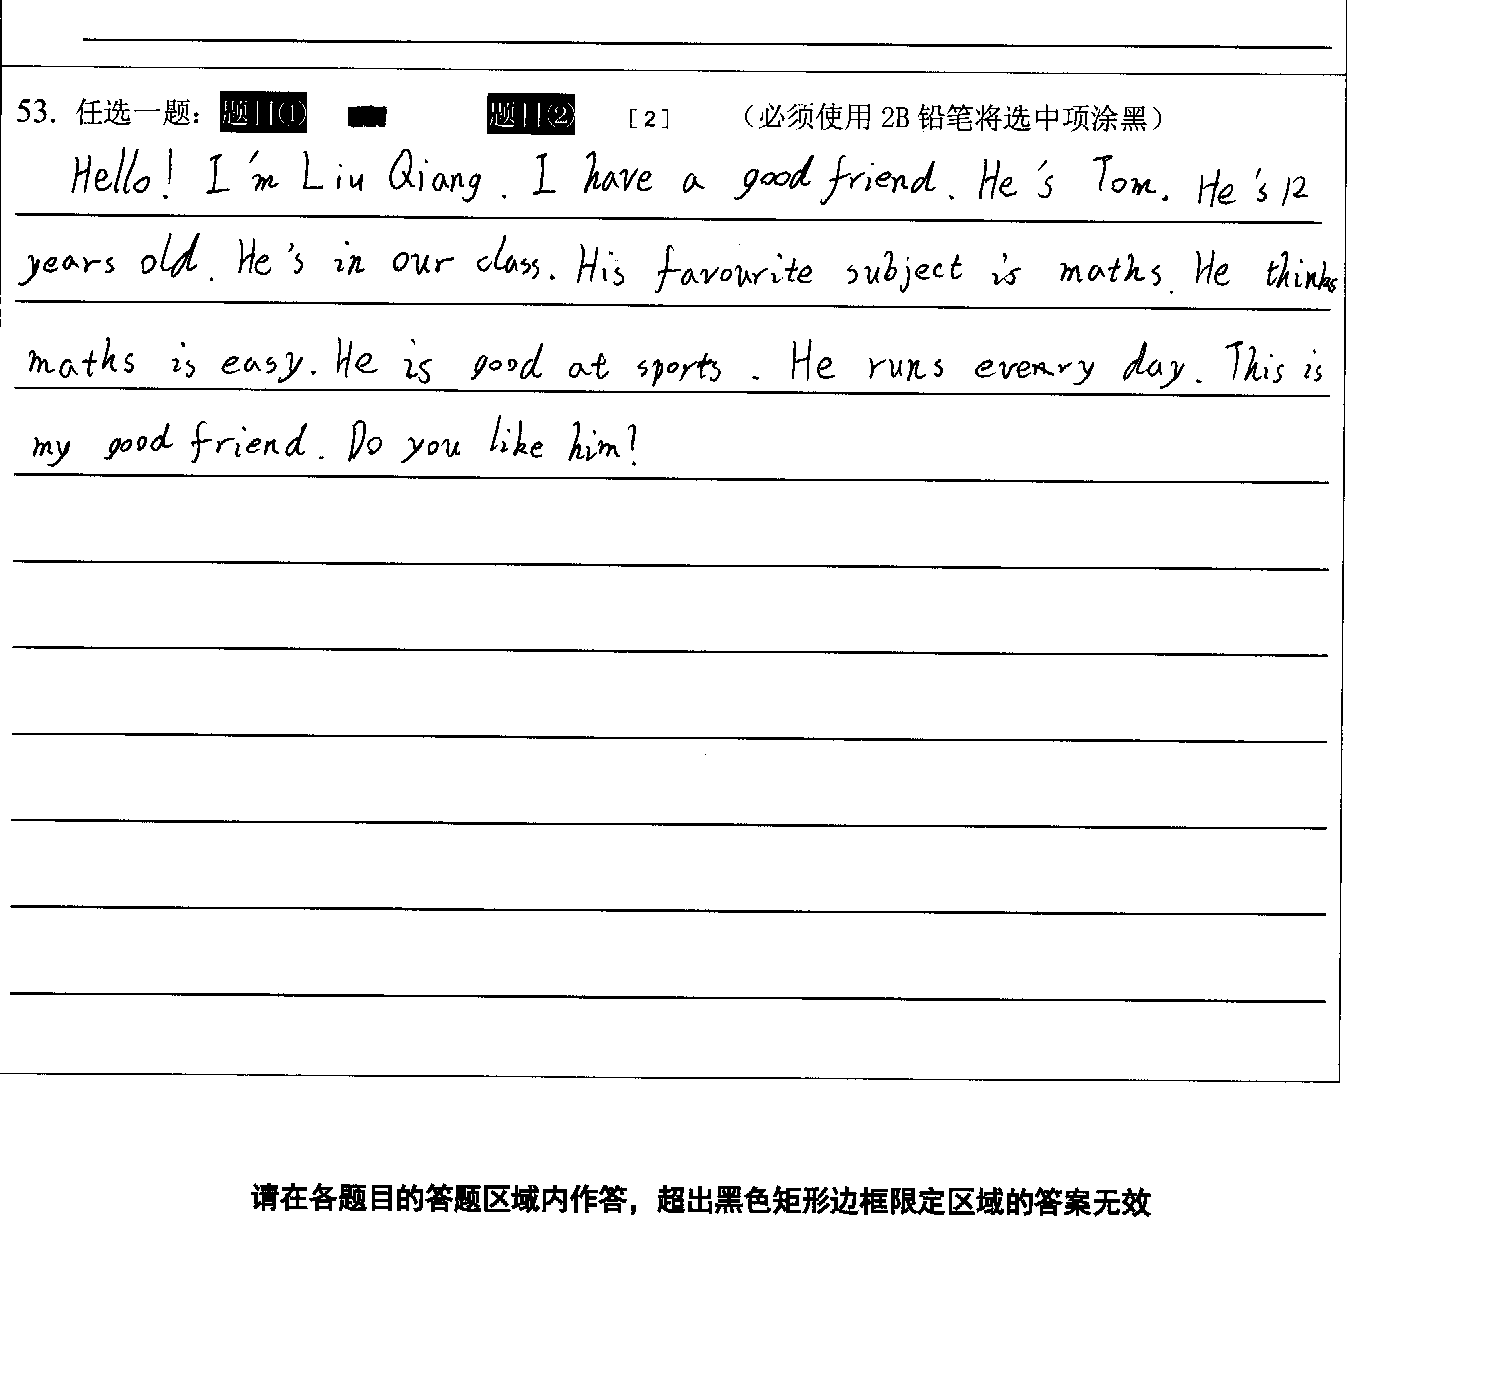 53. 任选一题： 题目(1) 题目(2) [2] （必须使用 2B 铅笔将选中项涂黑）
Hello! I'm Liu Qiang. I have a good friend. He's Tom. He's 12
years old. He's in our class. His favourite subject is maths. He thinks
maths is easy. He is good at sports. He runs every day. This is
my good friend. Do you like him?
请在各题目的答题区域内作答，超出黑色矩形边框限定区域的答案无效